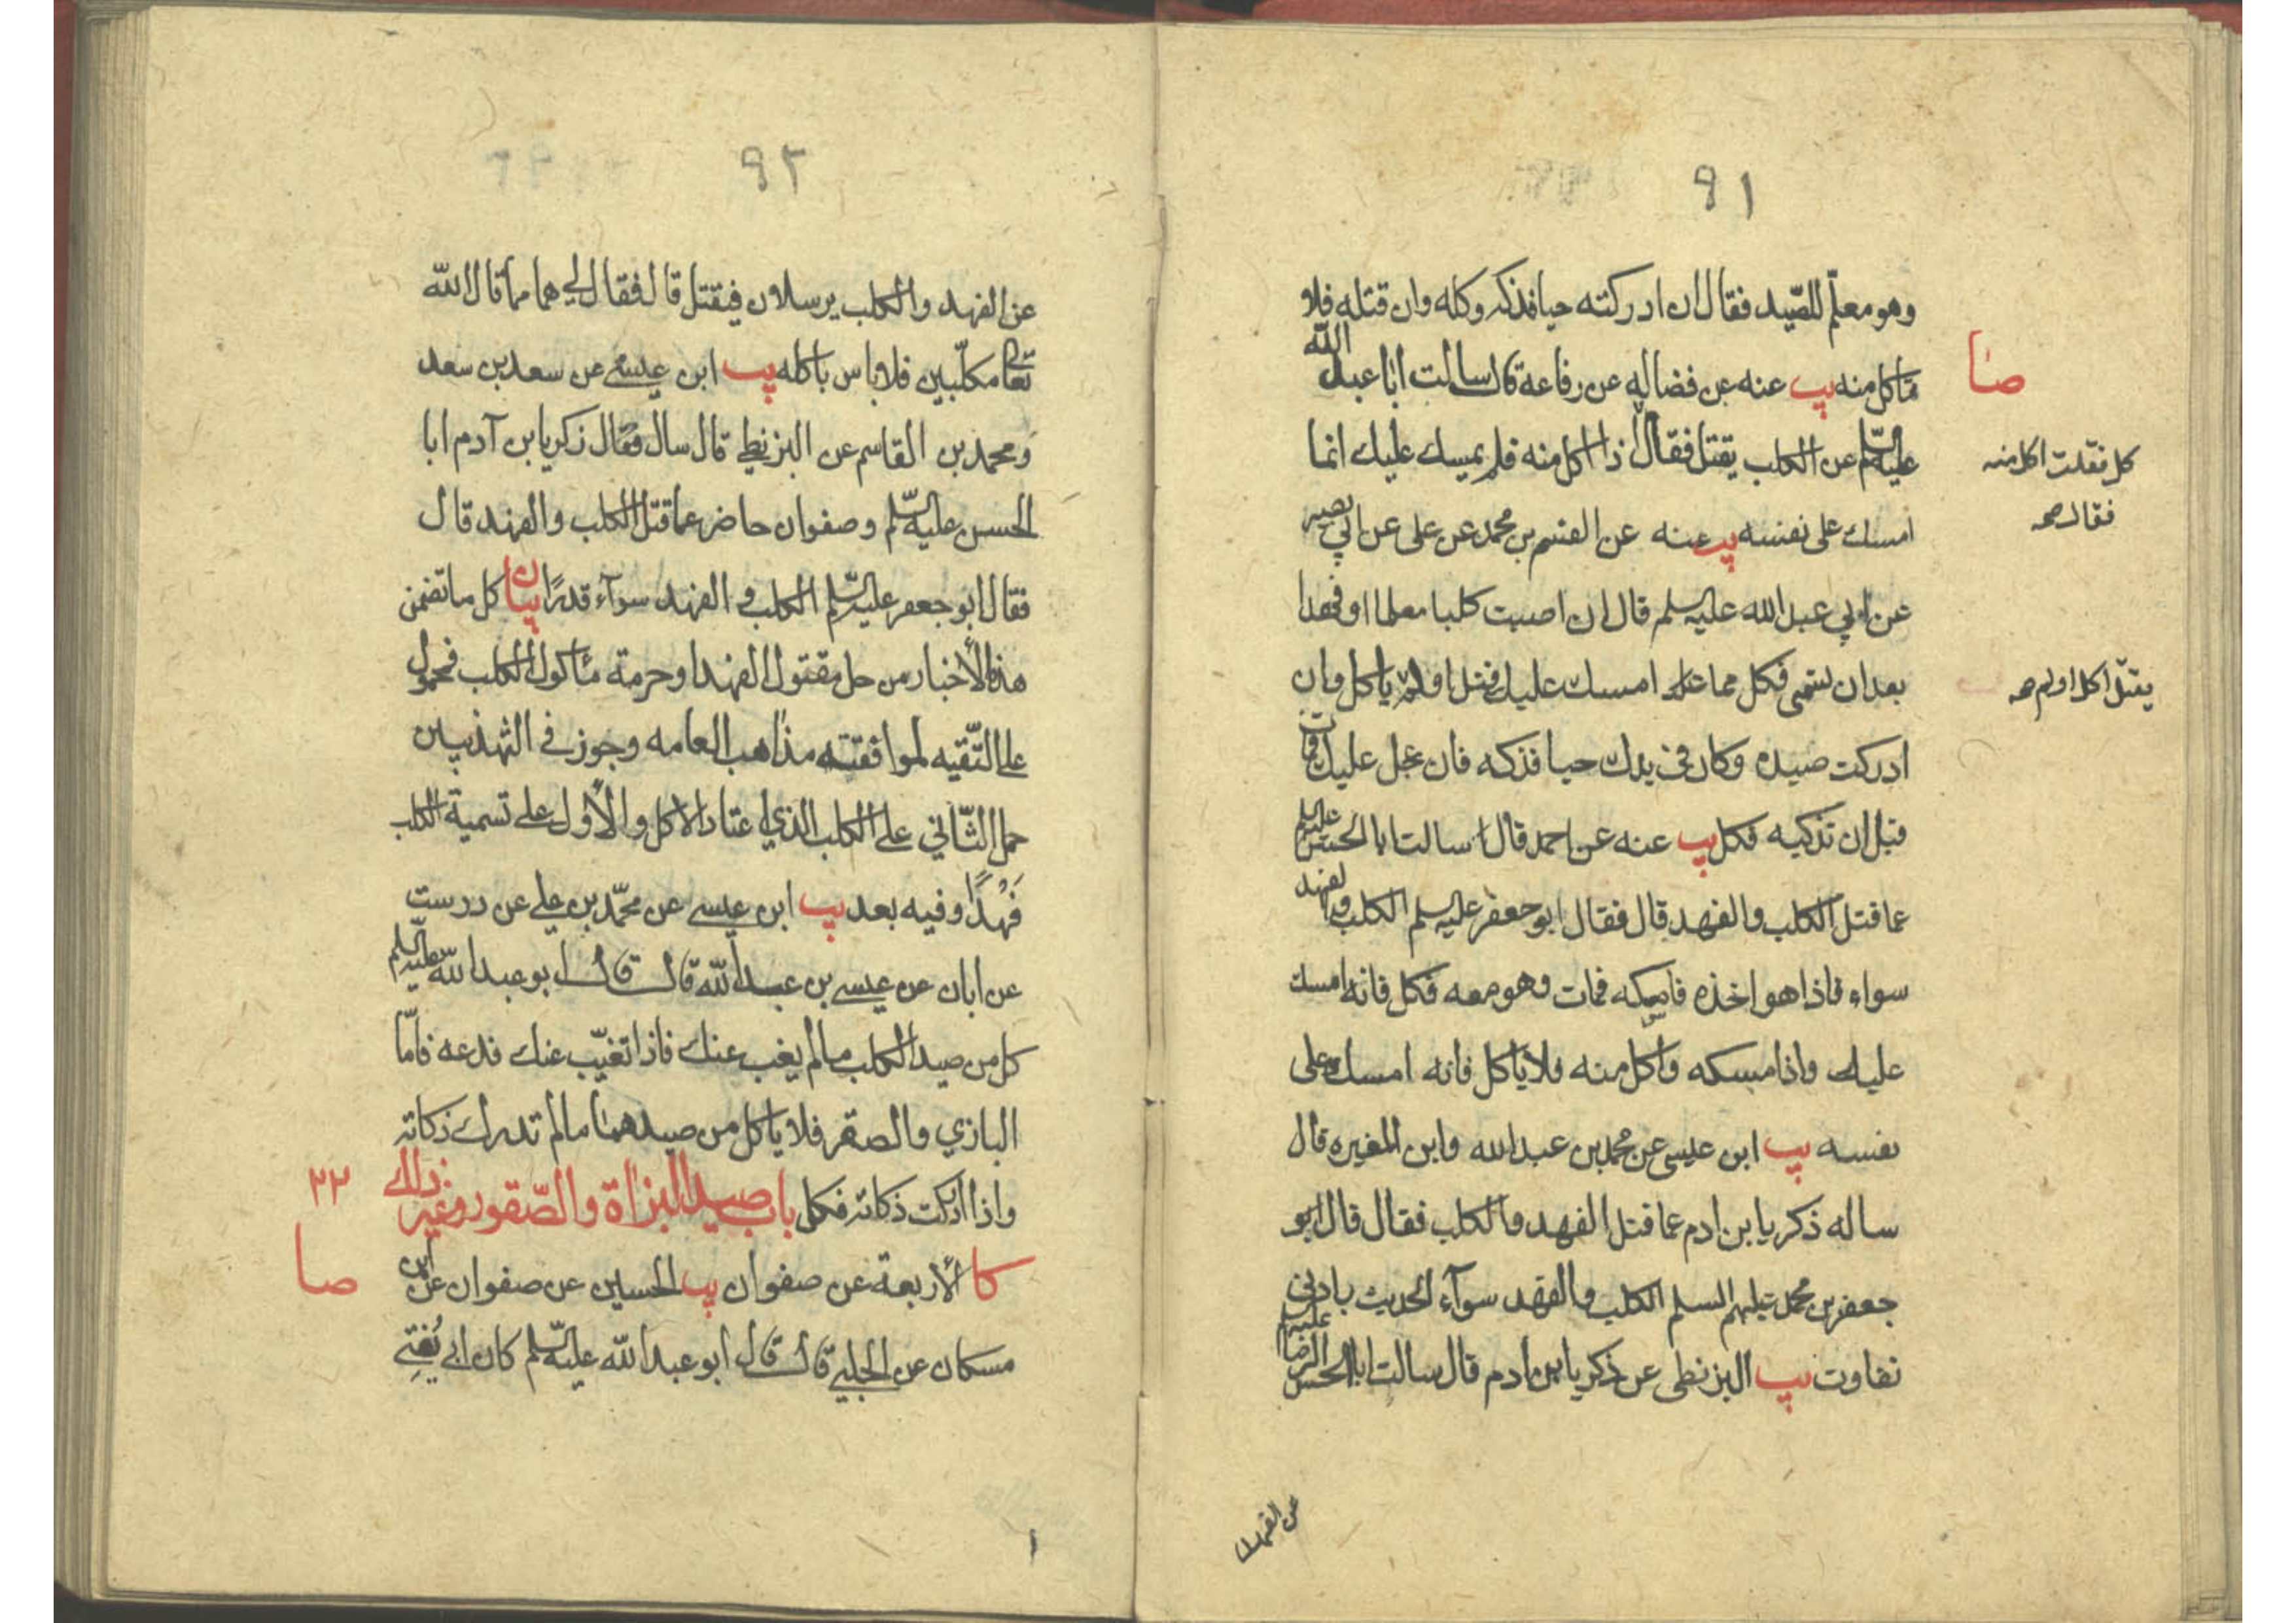 ٩١
وهو معلّم للصّيد فقال ان ادركته حيا فذكه وكله وان قتله فلا
تاكل منه يب عنه عن فضاله عن رفاعة قال سالت ابا عبد الله
صا
عليه السّلم عن الكلب يقتل فقال اذا اكل منه فلم يمسك عليك انما
كل فقلت اكل منه
فقال صح
امسك على نفسه يب عنه عن القسم بن محمد عن على عن ابي بصير
عن ابي عبد الله عليه السلم قال ان اصبت كلبا معلما او فهدا
بعد ان تسمى فكل مما امسك عليك قتل او لم ياكل وان
يقتل اكل او لم صح
ادركت صيده وكان في يدك حيا فذكه فان عجل عليك فمات
قبل ان تذكيه فكل يب عنه عن احمد قال سالت ابا الحسن عليه السلم
عما قتل الكلب والفهد قال فقال ابو جعفر عليه السلم الكلب والفهد
سواء فاذا هو اخذه فامسكه فمات وهو معه فكل فانه امسك
عليك واذا امسكه واكل منه فلا تاكل فانه امسك على
نفسه يب ابن عيسى عن محمد بن عبد الله وابن المغيره قال
ساله ذكريا بن ادم عما قتل الفهد والكلب فقال قال ابو
جعفر بن محمد عليهم السلم الكلب والفهد سوآء الحديث بادنى
تفاوت يب البزنطى عن ذكريا بن ادم قال سالت ابا الحسن الرضا عليه السلم
عن الفهد
٩٢
عن الفهد والكلب يرسلان فيقتل قال فقال لي هما مما قال الله
تعالى مكلّبين فلا باس باكله يب ابن عيسى عن سعد بن سعد
ومحمد بن القاسم عن البزنطي قال سال فقال زكريا بن آدم ابا
الحسن عليه السّلم وصفوان حاضر عما قتل الكلب والفهد قال
فقال ابو جعفر عليه السّلم الكلب و الفهد سوآء قدرًا بيان كل ما تضمن
هذه الأخبار من حل مقتول الفهد او حرمة مأكول الكلب فمحمول
على التّقيه لموافقته مذاهب العامه وجوز في التهذيبين
حمل الثّاني على الكلب الذي اعتاد الاكل والأول على تسمية الكلب
فَهْدًا وفيه بعد يب ابن عيسى عن محمّد بن علي عن درست
عن ابان عن عيسى بن عبد الله قال قال ابو عبد الله عليه السّلم
كل من صيد الكلب مالم يغب عنك فاذا تغيّب عنك فدعه فامّا
البازي والصقر فلا ياكل من صيدهما مالم تدرك ذكاته
واذا ادركت ذكاته فكل باب صيد البزاة والصّقور وغير ذلك
٢٢
كا الأربعة عن صفوان يب الحسين عن صفوان عن ابن
صا
مسكان عن الحلبي قال قال ابو عبد الله عليه السّلم كان ابي يُفتي